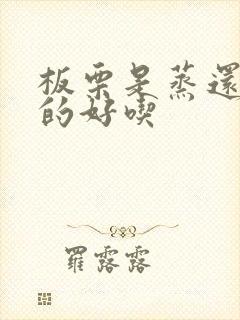 板栗是蒸還
的好喫
羅露露